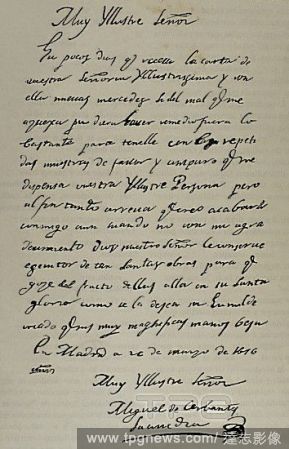 Muy Yllustre Señor
Ha pocos dias q̃ recevi la carta de
vuestra Señoria Yllustrissima y con
ella nuevas mercedes Si del mal q̃ me
aquexa pudiera haver remedio fuera lo
bastante para tenelle con las repeti
das muestras de favor y amparo q̃ me
dispensa vuestra Yllustre Persona pero
al fin tanto arrecia q̃ creo acabará
conmigo aun cuando no con mi agra
decimiento Dios nuestro Señor le conserve
egecutor de tan Santas obras para q̃
goze del fruto dellas alla en su Santa
gloria como se la desea su humilde
criado q̃ sus muy magnificas manos besa
En Madrid a 26 de marzo de 1616
años
Muy Yllustre Señor
Miguel de Cerbantes
Saavedra
www.tpgnews.com / 達志影像